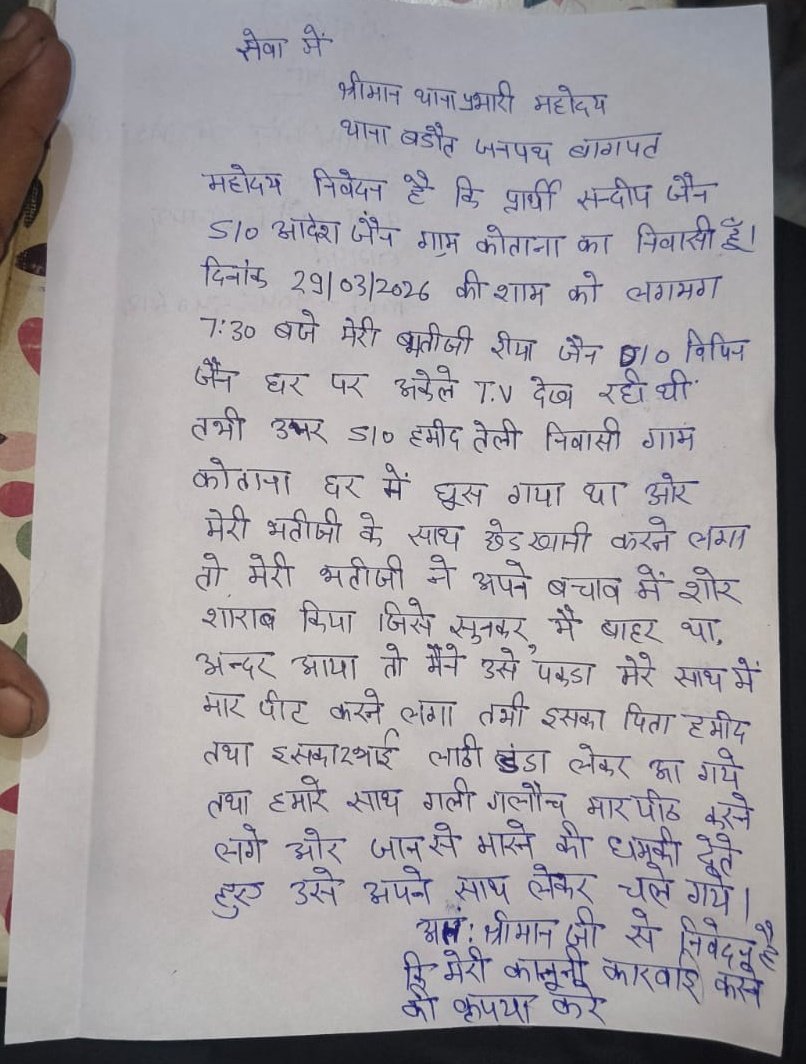 सेवा में
श्रीमान थाना प्रभारी महोदय
थाना बडौत जनपथ बागपत
महोदय निवेदन है कि प्रार्थी सन्दीप जैन
S/o आदेश जैन ग्राम कोताना का निवासी हूँ।
दिनांक 29/03/2026 की शाम को लगभग
7:30 बजे मेरी भतीजी रीया जैन D/o विपिन
जैन घर पर अकेले T.V देख रही थी
तभी उमर S/o हमीद तेली निवासी गाम
कोताना घर में घूस गया था ओर
मेरी भतीजी के साथ छेडखानी करने लगा
तो मेरी भतीजी ने अपने बचाव में शोर
शाराब किया जिसे सुनकर, मै बाहर था,
अन्दर आया तो मैंने उसे पकडा मेरे साथ में
मार पीट करने लगा तभी इसका पिता हमीद
तथा इसका भाई लाठी डंडा लेकर आ गये
तथा हमारे साथ गली गलौच मारपीठ करने
लगे ओर जान से मारने की धमकी देते
हुए उसे अपने साथ लेकर चले गये।
अतः श्रीमान जी से निवेदन है
कि मेरी कानूनी कारवाई करने
की कृपया करे